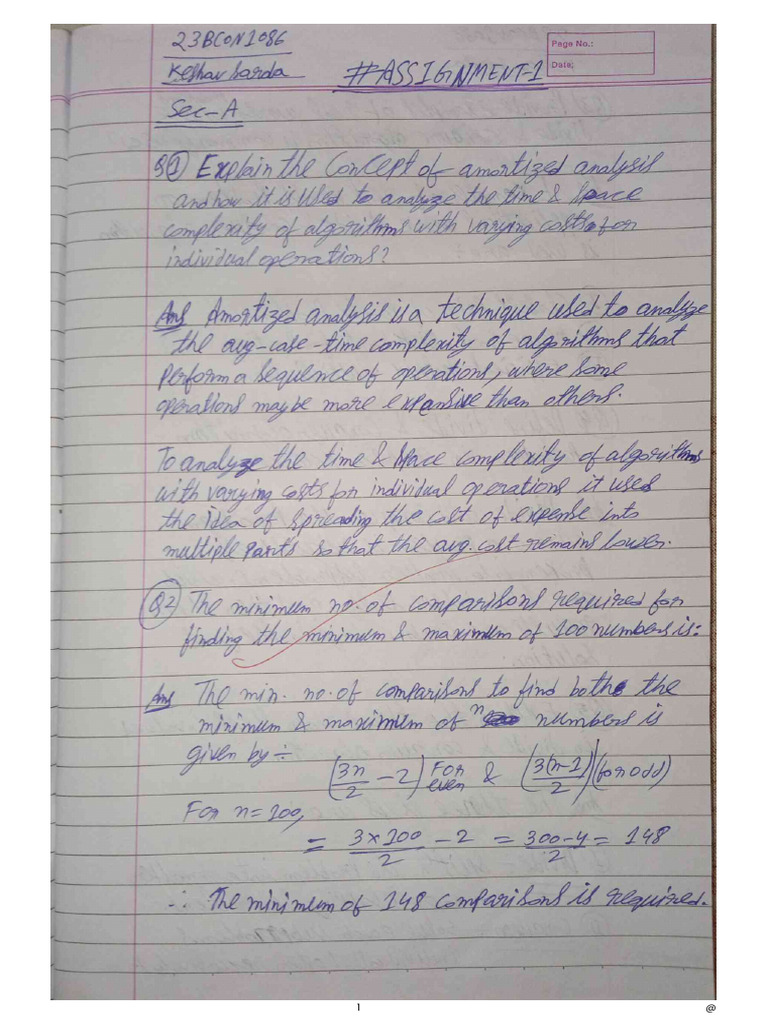 23BCON1086
Page No.:
Keshav Sarda
#ASSIGNMENT-1
Date:
Sec-A
Q① Explain the Concept of amortized analysis
and how it is used to analyze the time & space
complexity of algorithms with varying costs for
individual operations?
Ans Amortized analysis is a technique used to analyze
the avg-case-time complexity of algorithms that
perform a sequence of operations, where some
operations may be more expensive than others.
To analyze the time & space complexity of algorithms
with varying costs for individual operations it uses
the idea of spreading the cost of expense into
multiple parts so that the avg. cost remains lower.
Q2 The minimum no. of comparisons required for
finding the minimum & maximum of 100 numbers is:
Ans The min. no. of comparisons to find both the
minimum & maximum of n numbers is
given by ÷
(3n/2 - 2) For even & (3(n-1)/2) (for odd)
For n = 100,
= 3×100/2 - 2 = 300-4/2 = 148
∴ The minimum of 148 comparisons is required.
1
@